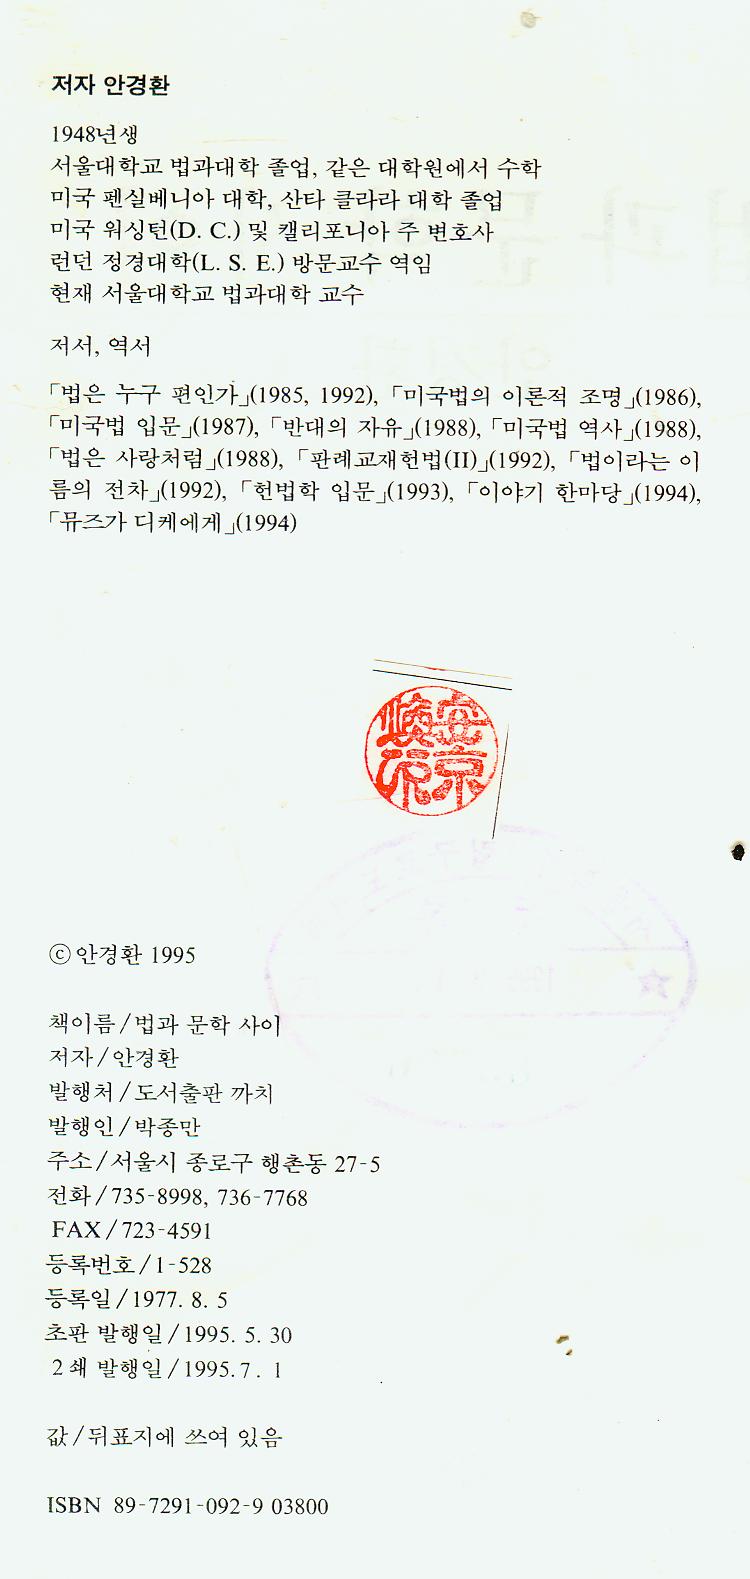 저자 안경환
1948년생
서울대학교 법과대학 졸업, 같은 대학원에서 수학
미국 펜실베니아 대학, 산타 클라라 대학 졸업
미국 워싱턴(D. C.) 및 캘리포니아 주 변호사
런던 정경대학(L. S. E.) 방문교수 역임
현재 서울대학교 법과대학 교수
저서, 역서
「법은 누구 편인가」(1985, 1992), 「미국법의 이론적 조명」(1986),
「미국법 입문」(1987), 「반대의 자유」(1988), 「미국법 역사」(1988),
「법은 사랑처럼」(1988), 「판례교재헌법(II)」(1992), 「법이라는 이
름의 전차」(1992), 「헌법학 입문」(1993), 「이야기 한마당」(1994),
「뮤즈가 디케에게」(1994)
ⓒ 안경환 1995
책이름/법과 문학 사이
저자/안경환
발행처/도서출판 까치
발행인/박종만
주소/서울시 종로구 행촌동 27-5
전화/735-8998, 736-7768
FAX/723-4591
등록번호/1-528
등록일/1977. 8. 5
초판 발행일/1995. 5. 30
2쇄 발행일/1995. 7. 1
값/뒤표지에 쓰여 있음
ISBN 89-7291-092-9 03800